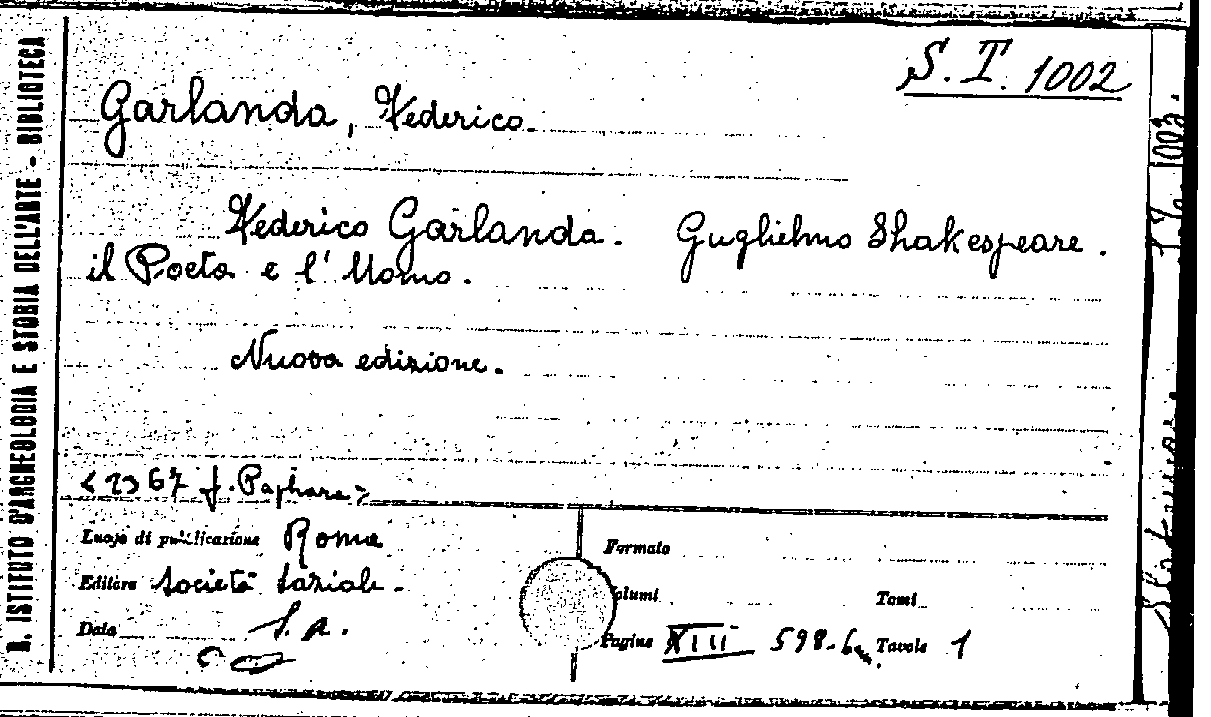 S. T. 1002
Garlanda, Federico.
Federico Garlanda. Guglielmo Shakespeare.
il Poeta e l' Uomo.
Nuova edizione.
Luogo di pubblicazione Roma
Editore Società Laziale.
Data S. a.
Formato
Volumi
Tomi
Pagine XIII 598- Tavole 1
R. ISTITUTO D'ARCHEOLOGIA E STORIA DELL'ARTE - BIBLIOTECA